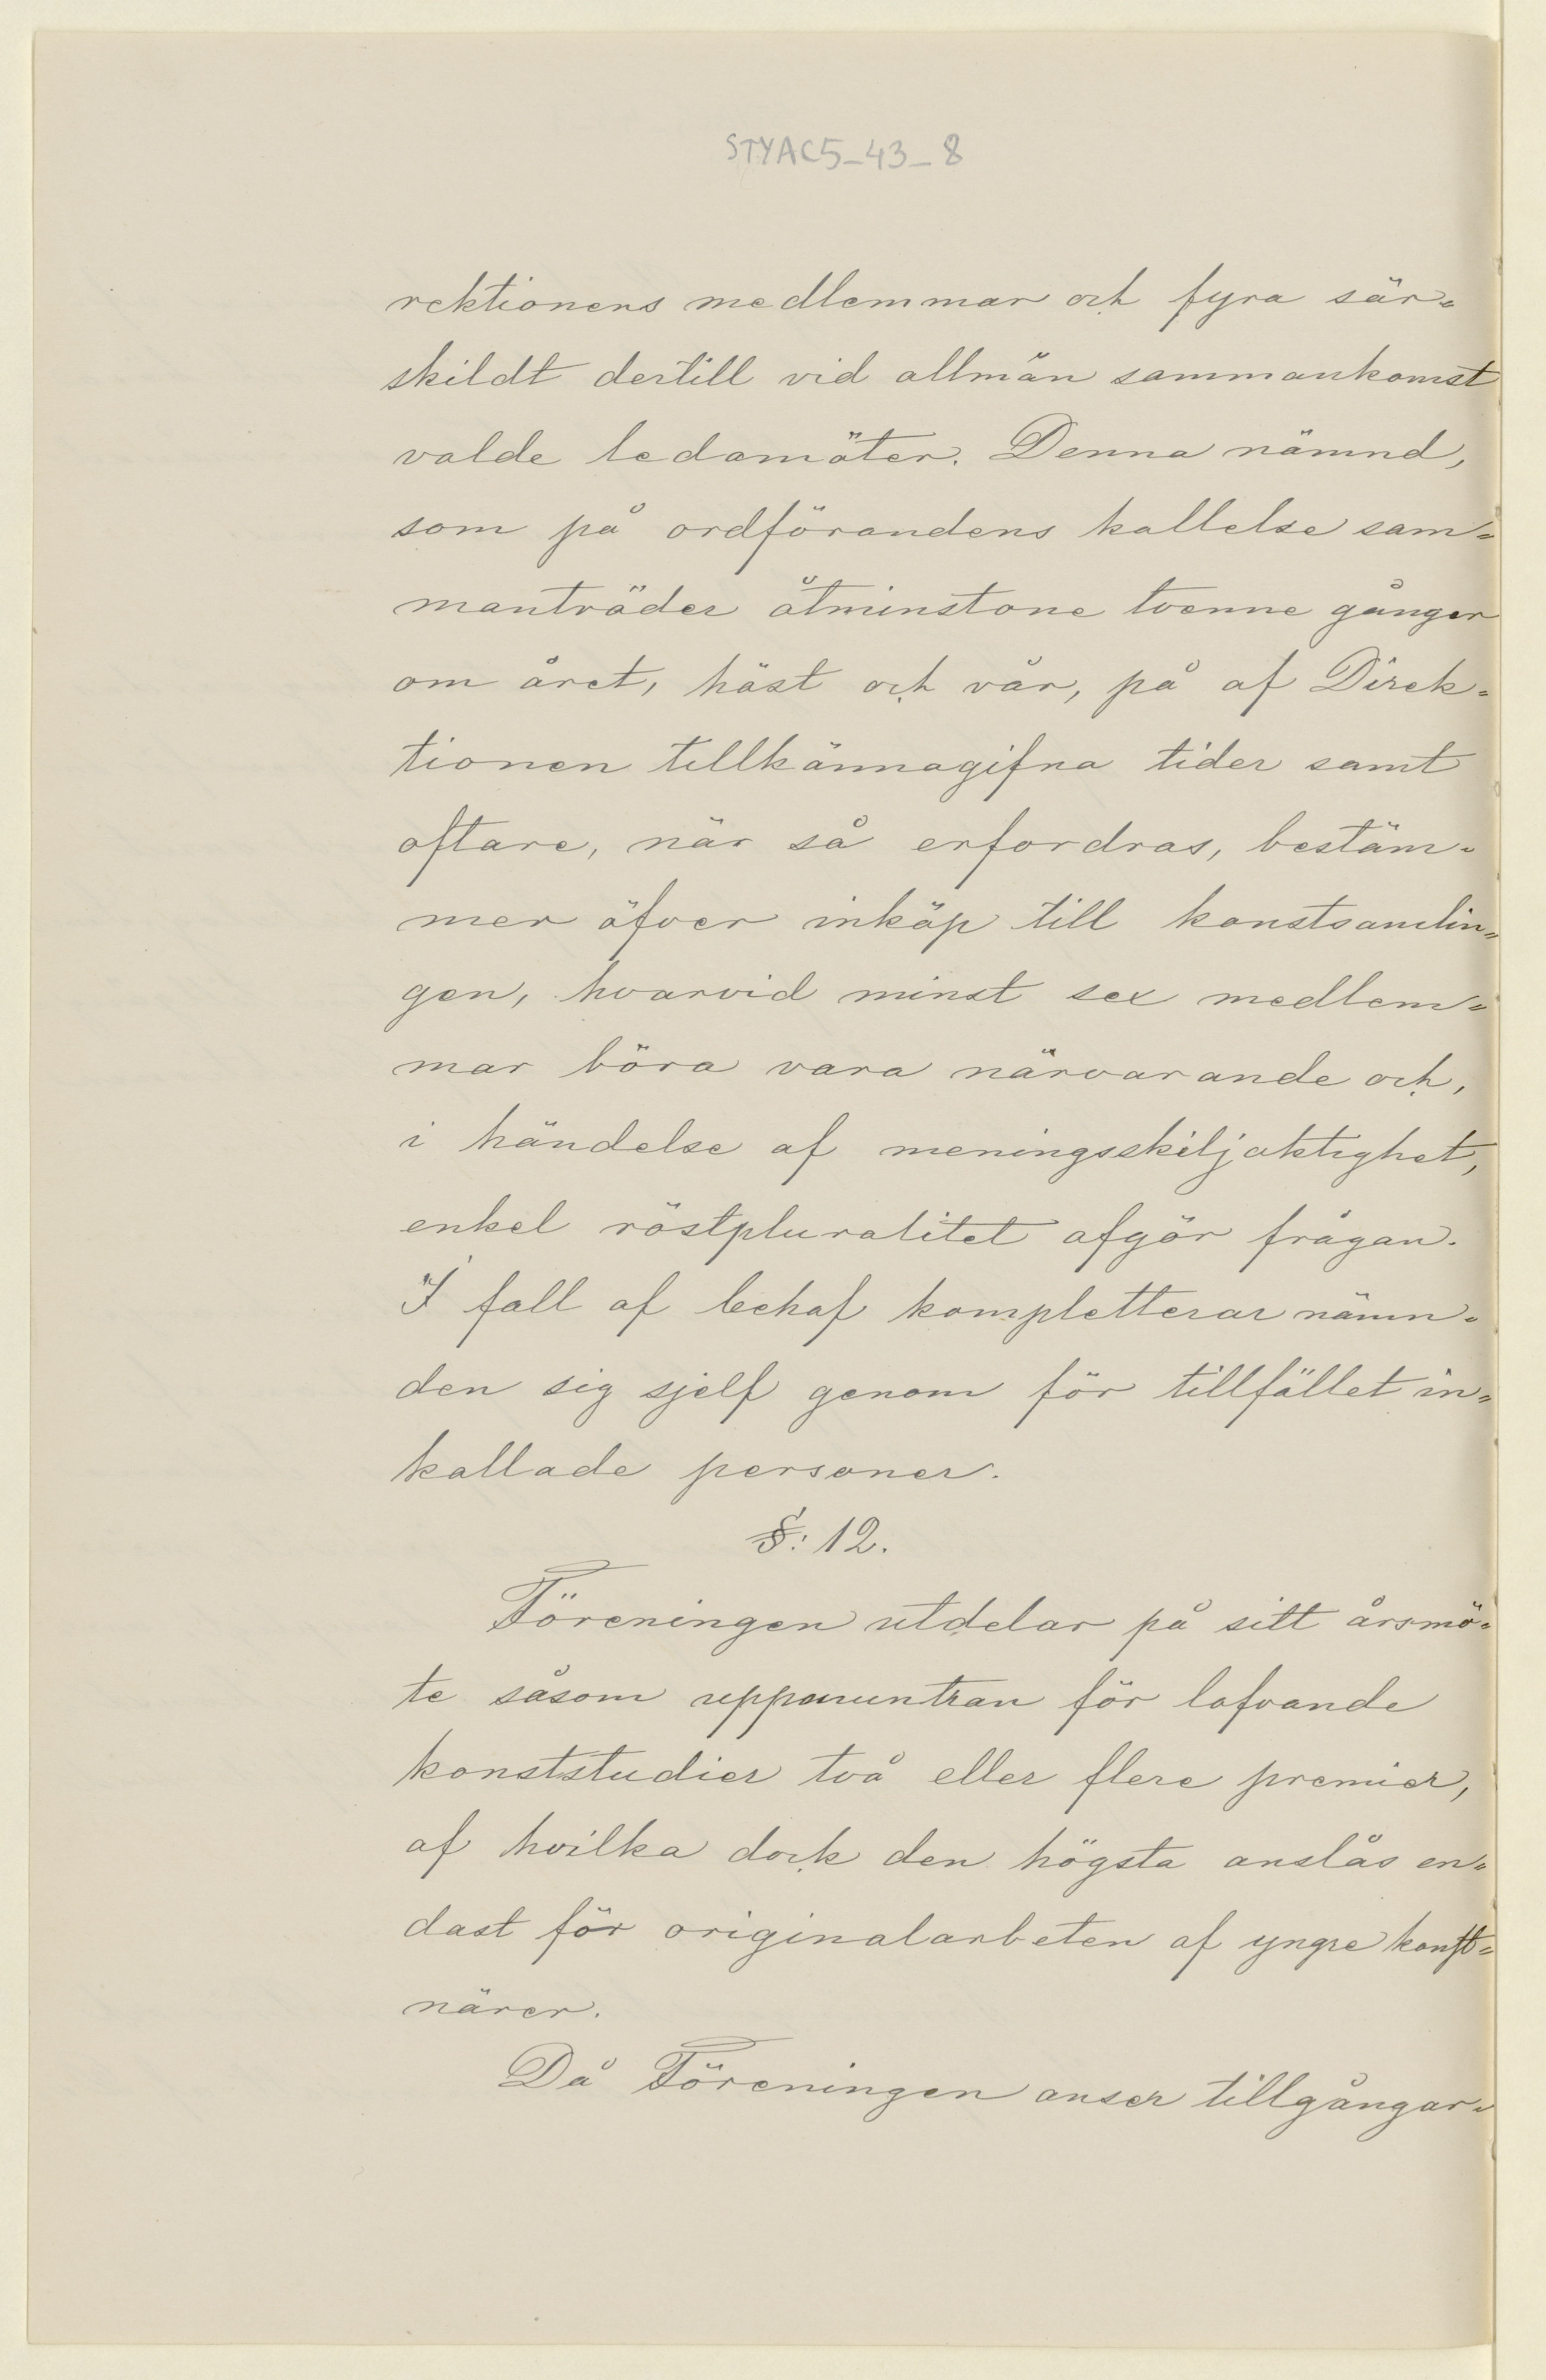 STYAC5_43_8
rektionens medlemmar och fyra sär-
skildt dertill vid allmän sammankomst
valde ledamöter. Denna nämnd,
som på ordförandens kallelse sam-
manträder åtminstone tvenne gånger
om året, höst och vår, på af Direk-
tionen tillkännagifna tider samt
oftare, när så erfordras, bestäm-
mer öfver inköp till konstsamlin-
gen, hvarvid minst sex medlem-
mar böra vara närvarande och,
i händelse af meningsskiljaktighet,
enkel röstpluralitet afgör frågan.
I fall af behof kompletterar nämn-
den sig sjelf genom för tillfället in-
kallade personer.
§: 12.
Föreningen utdelar på sitt årsmö-
te såsom uppmuntran för lofvande
konststudier två eller flere premier,
af hvilka dock den högsta anslås en-
dast för originalarbeten af yngre konst-
närer.
Då Föreningen anser tillgångar-